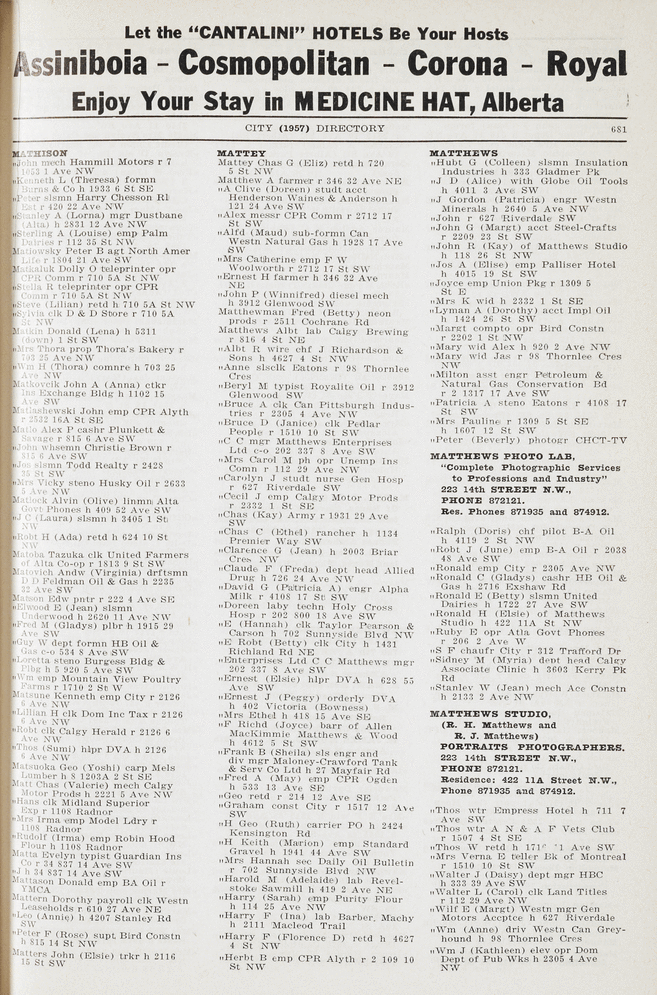 Let the "CANTALINI" HOTELS Be Your Hosts
Assiniboia - Cosmopolitan - Corona - Royal
Enjoy Your Stay in MEDICINE HAT, Alberta
CITY (1957) DIRECTORY 681
MATHISON
"John mech Hammill Motors r 7
1053 1 Ave NW
"Kenneth L (Theresa) formn
Burns & Co h 1933 6 St SE
"Peter slsmn Harry Chesson Rl
Est r 420 22 Ave NW
"Stanley A (Lorna) mgr Dustbane
(Alta) h 2831 12 Ave NW
"Sterling A (Louise) emp Palm
Dairies r 112 35 St NW
Matiowsky Peter B agt North Amer
Life r 1804 21 Ave SW
Matkaluk Dolly O teleprinter opr
CPR Comm r 710 5A St NW
"Stella R teleprinter opr CPR
Comm r 710 5A St NW
"Steve (Lillian) retd h 710 5A St NW
"Sylvia clk D & D Store r 710 5A
St NW
Matkin Donald (Lena) h 5311
(down) 1 St SW
"Mrs Thora prop Thora's Bakery r
703 25 Ave NW
"Wm H (Thora) comnre h 703 25
Ave NW
Matkovcik John A (Anna) ctkr
Ins Exchange Bldg h 1102 15
Ave SW
Matlashewski John emp CPR Alyth
r 2532 16A St SE
Matie Alex P cashr Plunkett &
Savage r 815 6 Ave SW
"John whsemn Christie Brown r
815 6 Ave SW
"Jos slsmn Todd Realty r 2428
35 St SW
"Mrs Vicky steno Husky Oil r 2633
5 Ave NW
Matlock Alvin (Olive) linmn Alta
Govt Phones h 409 52 Ave SW
"J C (Laura) slsmn h 3405 1 St
NW
"Robt H (Ada) retd h 624 10 St
NW
Matoba Tazuka clk United Farmers
of Alta Co-op r 1813 9 St SW
Matovich Andw (Virginia) drftsmn
D D Feldman Oil & Gas h 2235
32 Ave SW
Matson Edw pntr r 222 4 Ave SE
"Elwood E (Jean) slsmn
Underwood h 2620 11 Ave NW
"Fred M (Gladys) plbr h 1915 29
Ave SW
"Roy W dept formn HB Oil &
Gas c-o 534 8 Ave SW
"Loretta steno Burgess Bldg &
Plbg h 5 920 5 Ave SW
"Wm emp Mountain View Poultry
Farms r 1710 2 St W
Matsune Kenneth emp City r 2126
6 Ave NW
"Lillian H clk Dom Inc Tax r 2126
6 Ave NW
"Robt clk Calgy Herald r 2126 6
Ave NW
"Thos (Sumi) hlpr DVA h 2126
6 Ave NW
Matsuoka Geo (Yoshi) carp Mels
Lumber h 8 1203A 2 St SE
Matt Chas (Valerie) mech Calgy
Motor Prods h 2221 5 Ave NW
"Hans clk Midland Superior
Exp r 1108 Radnor
"Mrs Irma emp Model Ldry r
1108 Radnor
"Rudolf (Irma) emp Robin Hood
Flour h 1108 Radnor
Matta Evelyn typist Guardian Ins
Co r 34 837 14 Ave SW
"J h 34 837 14 Ave SW
Mattason Donald emp BA Oil r
YMCA
Mattern Dorothy payroll clk Westn
Leaseholds r 610 27 Ave NE
"Leo (Annie) h 4207 Stanley Rd
SW
"Peter F (Rose) supt Bird Constn
h 815 14 St NW
Matters John (Elsie) trkr h 2116
15 St SW
MATTEY
Mattey Chas G (Eliz) retd h 720
5 St NW
Matthew A farmer r 346 32 Ave NE
"A Clive (Doreen) studt acct
Henderson Waines & Anderson h
121 24 Ave SW
"Alex messr CPR Comm r 2712 17
St SW
"Alfd (Maud) sub-formn Can
Westn Natural Gas h 1928 17 Ave
SW
"Mrs Catherine emp F W
Woolworth r 2712 17 St SW
"Ernest H farmer h 346 32 Ave
NE
"John P (Winnifred) diesel mech
h 3912 Glenwood SW
Matthewman Fred (Betty) neon
prods r 2511 Cochrane Rd
Matthews Albt lab Calgy Brewing
r 816 4 St NE
"Albt R wire chf J Richardson &
Sons h 4627 4 St NW
"Anne slsclk Eatons r 98 Thornlee
Cres
"Beryl M typist Royalite Oil r 3912
Glenwood SW
"Bruce A clk Can Pittsburgh Indus-
tries r 2305 4 Ave NW
"Bruce D (Janice) clk Pedlar
People r 1510 10 St SW
"C C mgr Matthews Enterprises
Ltd c-o 202 337 8 Ave SW
"Mrs Carol M ph opr Unemp Ins
Comn r 112 29 Ave NW
"Carolyn J studt nurse Gen Hosp
r 627 Riverdale SW
"Cecil J emp Calgy Motor Prods
r 2332 1 St SE
"Chas (Kay) Army r 1931 29 Ave
SW
"Chas C (Ethel) rancher h 1134
Premier Way SW
"Clarence G (Jean) h 2003 Briar
Cres NW
"Claude F (Freda) dept head Allied
Drug h 726 24 Ave NW
"David G (Patricia) engr Alpha
Milk r 4108 17 St SW
"Doreen laby techn Holy Cross
Hosp r 202 800 18 Ave SW
"E (Hannah) clk Taylor Pearson &
Carson h 702 Sunnyside Blvd NW
"E Robt (Betty) clk City h 1431
Richland Rd NE
"Enterprises Ltd C C Matthews mgr
202 337 8 Ave SW
"Ernest (Elsie) hlpr DVA h 628 55
Ave SW
"Ernest J (Peggy) orderly DVA
h 402 Victoria (Bowness)
"Mrs Ethel h 418 15 Ave SE
"F Richd (Joyce) barr of Allen
MacKimmie Matthews & Wood
h 4612 5 St SW
"Frank B (Sheila) sls engr and
div mgr Maloney-Crawford Tank
& Serv Co Ltd h 27 Mayfair Rd
"Fred A (May) emp CPR Ogden
h 533 13 Ave SE
"Geo retd r 214 12 Ave SE
"Graham const City r 1517 12 Ave
SW
"H Geo (Ruth) carrier PO h 2424
Kensington Rd
"H Keith (Marion) emp Standard
Gravel h 1941 44 Ave SW
"Mrs Hannah sec Daily Oil Bulletin
r 702 Sunnyside Blvd NW
"Harold M (Adelaide) lab Revel-
stoke Sawmill h 419 2 Ave NE
"Harry (Sarah) emp Purity Flour
h 114 25 Ave NW
"Harry F (Ina) lab Barber Machy
h 2111 Macleod Trail
"Harry F (Florence D) retd h 4627
4 St NW
"Herbt B emp CPR Alyth r 2 109 10
St NW
MATTHEWS
"Hubt G (Colleen) slsmn Insulation
Industries h 333 Gladmer Pk
"J D (Alice) with Globe Oil Tools
h 4011 3 Ave SW
"J Gordon (Patricia) engr Westn
Minerals h 2640 5 Ave NW
"John r 627 Riverdale SW
"John G (Margt) acct Steel-Crafts
r 2209 23 St SW
"John R (Kay) of Matthews Studio
h 118 26 St NW
"Jos A (Elise) emp Palliser Hotel
h 4015 19 St SW
"Joyce emp Union Pkg r 1309 5
St E
"Mrs K wid h 2332 1 St SE
"Lyman A (Dorothy) acct Impl Oil
h 1424 26 St SW
"Margt compto opr Bird Constn
r 2202 1 St NW
"Mary wid Alex h 920 2 Ave NW
"Mary wid Jas r 98 Thornlee Cres
NW
"Milton asst engr Petroleum &
Natural Gas Conservation Bd
r 2 1317 17 Ave SW
"Patricia A steno Eatons r 4108 17
St SW
"Mrs Pauline r 1309 5 St SE
h 1607 12 St SW
"Peter (Beverly) photogr CHCT-TV
MATTHEWS PHOTO LAB,
"Complete Photographic Services
to Professions and Industry"
223 14th STREET N.W.,
PHONE 872121.
Res. Phones 871935 and 874912.
"Ralph (Doris) chf pilot B-A Oil
h 4119 2 St NW
"Robt J (June) emp B-A Oil r 2038
48 Ave SW
"Ronald emp City r 2305 Ave NW
"Ronald C (Gladys) cashr HB Oil &
Gas h 2716 Exshaw Rd
"Ronald E (Betty) slsmn United
Dairies h 1722 27 Ave SW
"Ronald H (Elsie) of Matthews
Studio h 422 11A St NW
"Ruby E opr Atla Govt Phones
r 206 2 Ave W
"S F chaufr City r 312 Trafford Dr
"Sidney M (Myria) dept head Calgy
Associate Clinic h 3603 Kerry Pk
Rd
"Stanley W (Jean) mech Ace Constn
h 2133 2 Ave NW
MATTHEWS STUDIO,
(R. H. Matthews and
R. J. Matthews)
PORTRAITS PHOTOGRAPHERS.
223 14th STREET N.W.,
PHONE 872121.
Residence: 422 11A Street N.W.,
Phone 871935 and 874912.
"Thos wtr Empress Hotel h 711 7
Ave SW
"Thos wtr A N & A F Vets Club
r 1507 4 St SE
"Thos W retd h Ave SW
"Mrs Verna E teller Bk of Montreal
r 1510 10 St SW
"Walter J (Daisy) dept mgr HBC
h 333 39 Ave SW
"Walter L (Carol) clk Land Titles
r 112 29 Ave NW
"Wilf E (Margt) Westn mgr Gen
Motors Accptce h 627 Riverdale
"Wm (Anne) driv Westn Can Grey-
hound h 98 Thornlee Cres
"Wm J (Kathleen) elev opr Dom
Dept of Pub Wks h 2305 4 Ave
NW